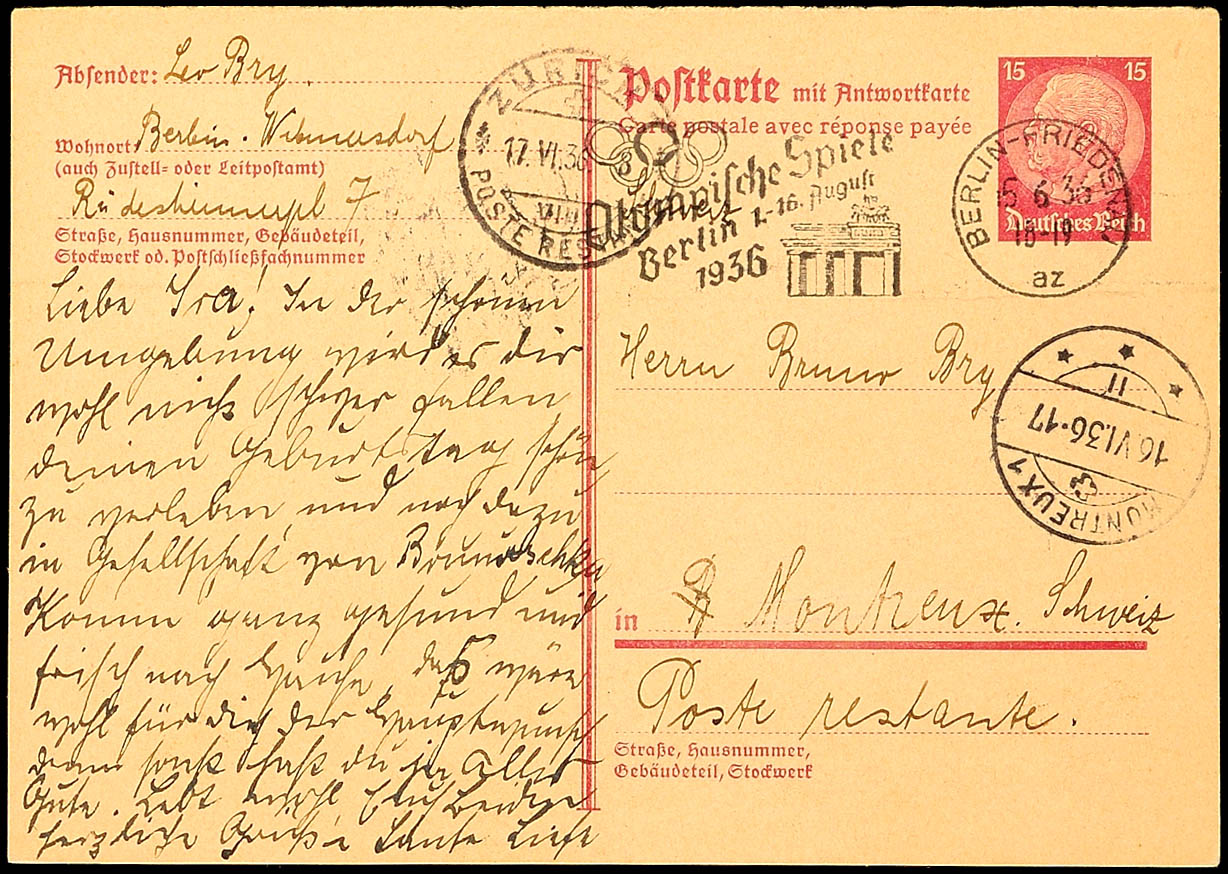 Absender: Leo Bry
Wohnort Berlin-Wilmersdorf
(auch Zustell- oder Leitpostamt)
Rüdesheimerpl 7
Straße, Hausnummer, Gebäudeteil,
Stockwerk od. Postschließfachnummer
Liebe Ira! In der schönen
Umgebung wird es dir
wohl nicht schwer fallen
deinen Geburtstag schön
zu verleben und noch dazu
in Gesellschaft von
Komm ganz gesund und
frisch nach Hause, das wäre
wohl für dich der Hauptwunsch
denn sonst hast du ja alles
Gute. Lebt wohl Euch Beiden
herzliche Grüße Tante
Postkarte mit Antwortkarte
Carte postale avec réponse payée
15 15
Deutsches Reich
ZÜRICH
17.VI.36
POSTE RESTANTE
Olympische Spiele
Berlin 1.-16. August
1936
BERLIN-FRIEDENAU
5.6.36
18-19
az
Herrn Bruno Bry
II
16.VI.36-17
MONTREUX 1
in Montreux. Schweiz
Poste restante.
Straße, Hausnummer,
Gebäudeteil, Stockwerk